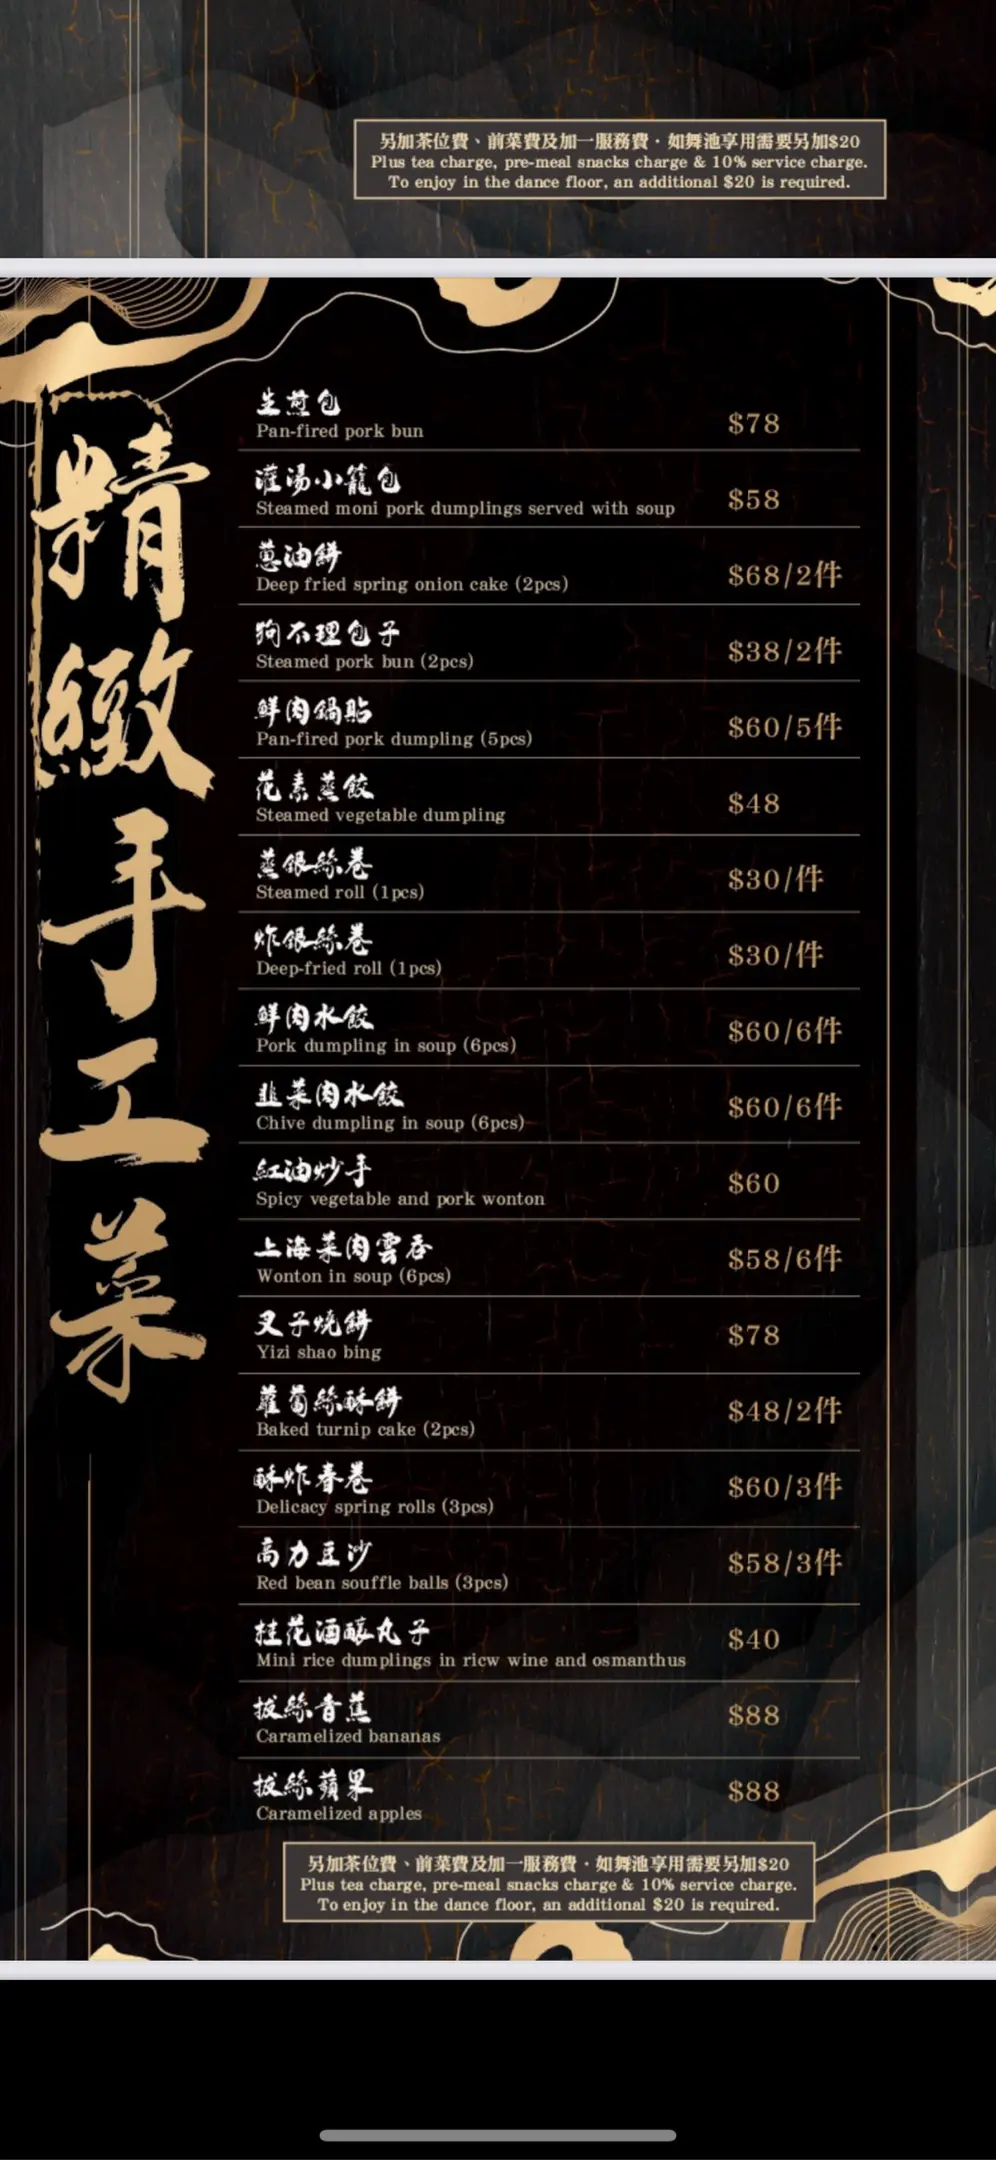 另加茶位費、前菜費及加一服務費·如舞池享用需要另加$20
Plus tea charge, pre-meal snacks charge & 10% service charge.
To enjoy in the dance floor, an additional $20 is required.
精緻手工菜
生煎包
Pan-fired pork bun
$78
灌湯小籠包
Steamed moni pork dumplings served with soup
$58
蔥油餅
Deep fried spring onion cake (2pcs)
$68/2件
狗不理包子
Steamed pork bun (2pcs)
$38/2件
鮮肉鍋貼
Pan-fired pork dumpling (5pcs)
$60/5件
花素蒸餃
Steamed vegetable dumpling
$48
蒸銀絲卷
Steamed roll (1pcs)
$30/件
炸銀絲卷
Deep-fried roll (1pcs)
$30/件
鮮肉水餃
Pork dumpling in soup (6pcs)
$60/6件
韮菜肉水餃
Chive dumpling in soup (6pcs)
$60/6件
紅油炒手
Spicy vegetable and pork wonton
$60
上海菜肉雲吞
Wonton in soup (6pcs)
$58/6件
叉子燒餅
Yizi shao bing
$78
蘿蔔絲酥餅
Baked turnip cake (2pcs)
$48/2件
酥炸春卷
Delicacy spring rolls (3pcs)
$60/3件
高力豆沙
Red bean souffle balls (3pcs)
$58/3件
桂花酒釀丸子
Mini rice dumplings in ricw wine and osmanthus
$40
拔絲香蕉
Caramelized bananas
$88
拔絲蘋果
Caramelized apples
$88
另加茶位費、前菜費及加一服務費·如舞池享用需要另加$20
Plus tea charge, pre-meal snacks charge & 10% service charge.
To enjoy in the dance floor, an additional $20 is required.